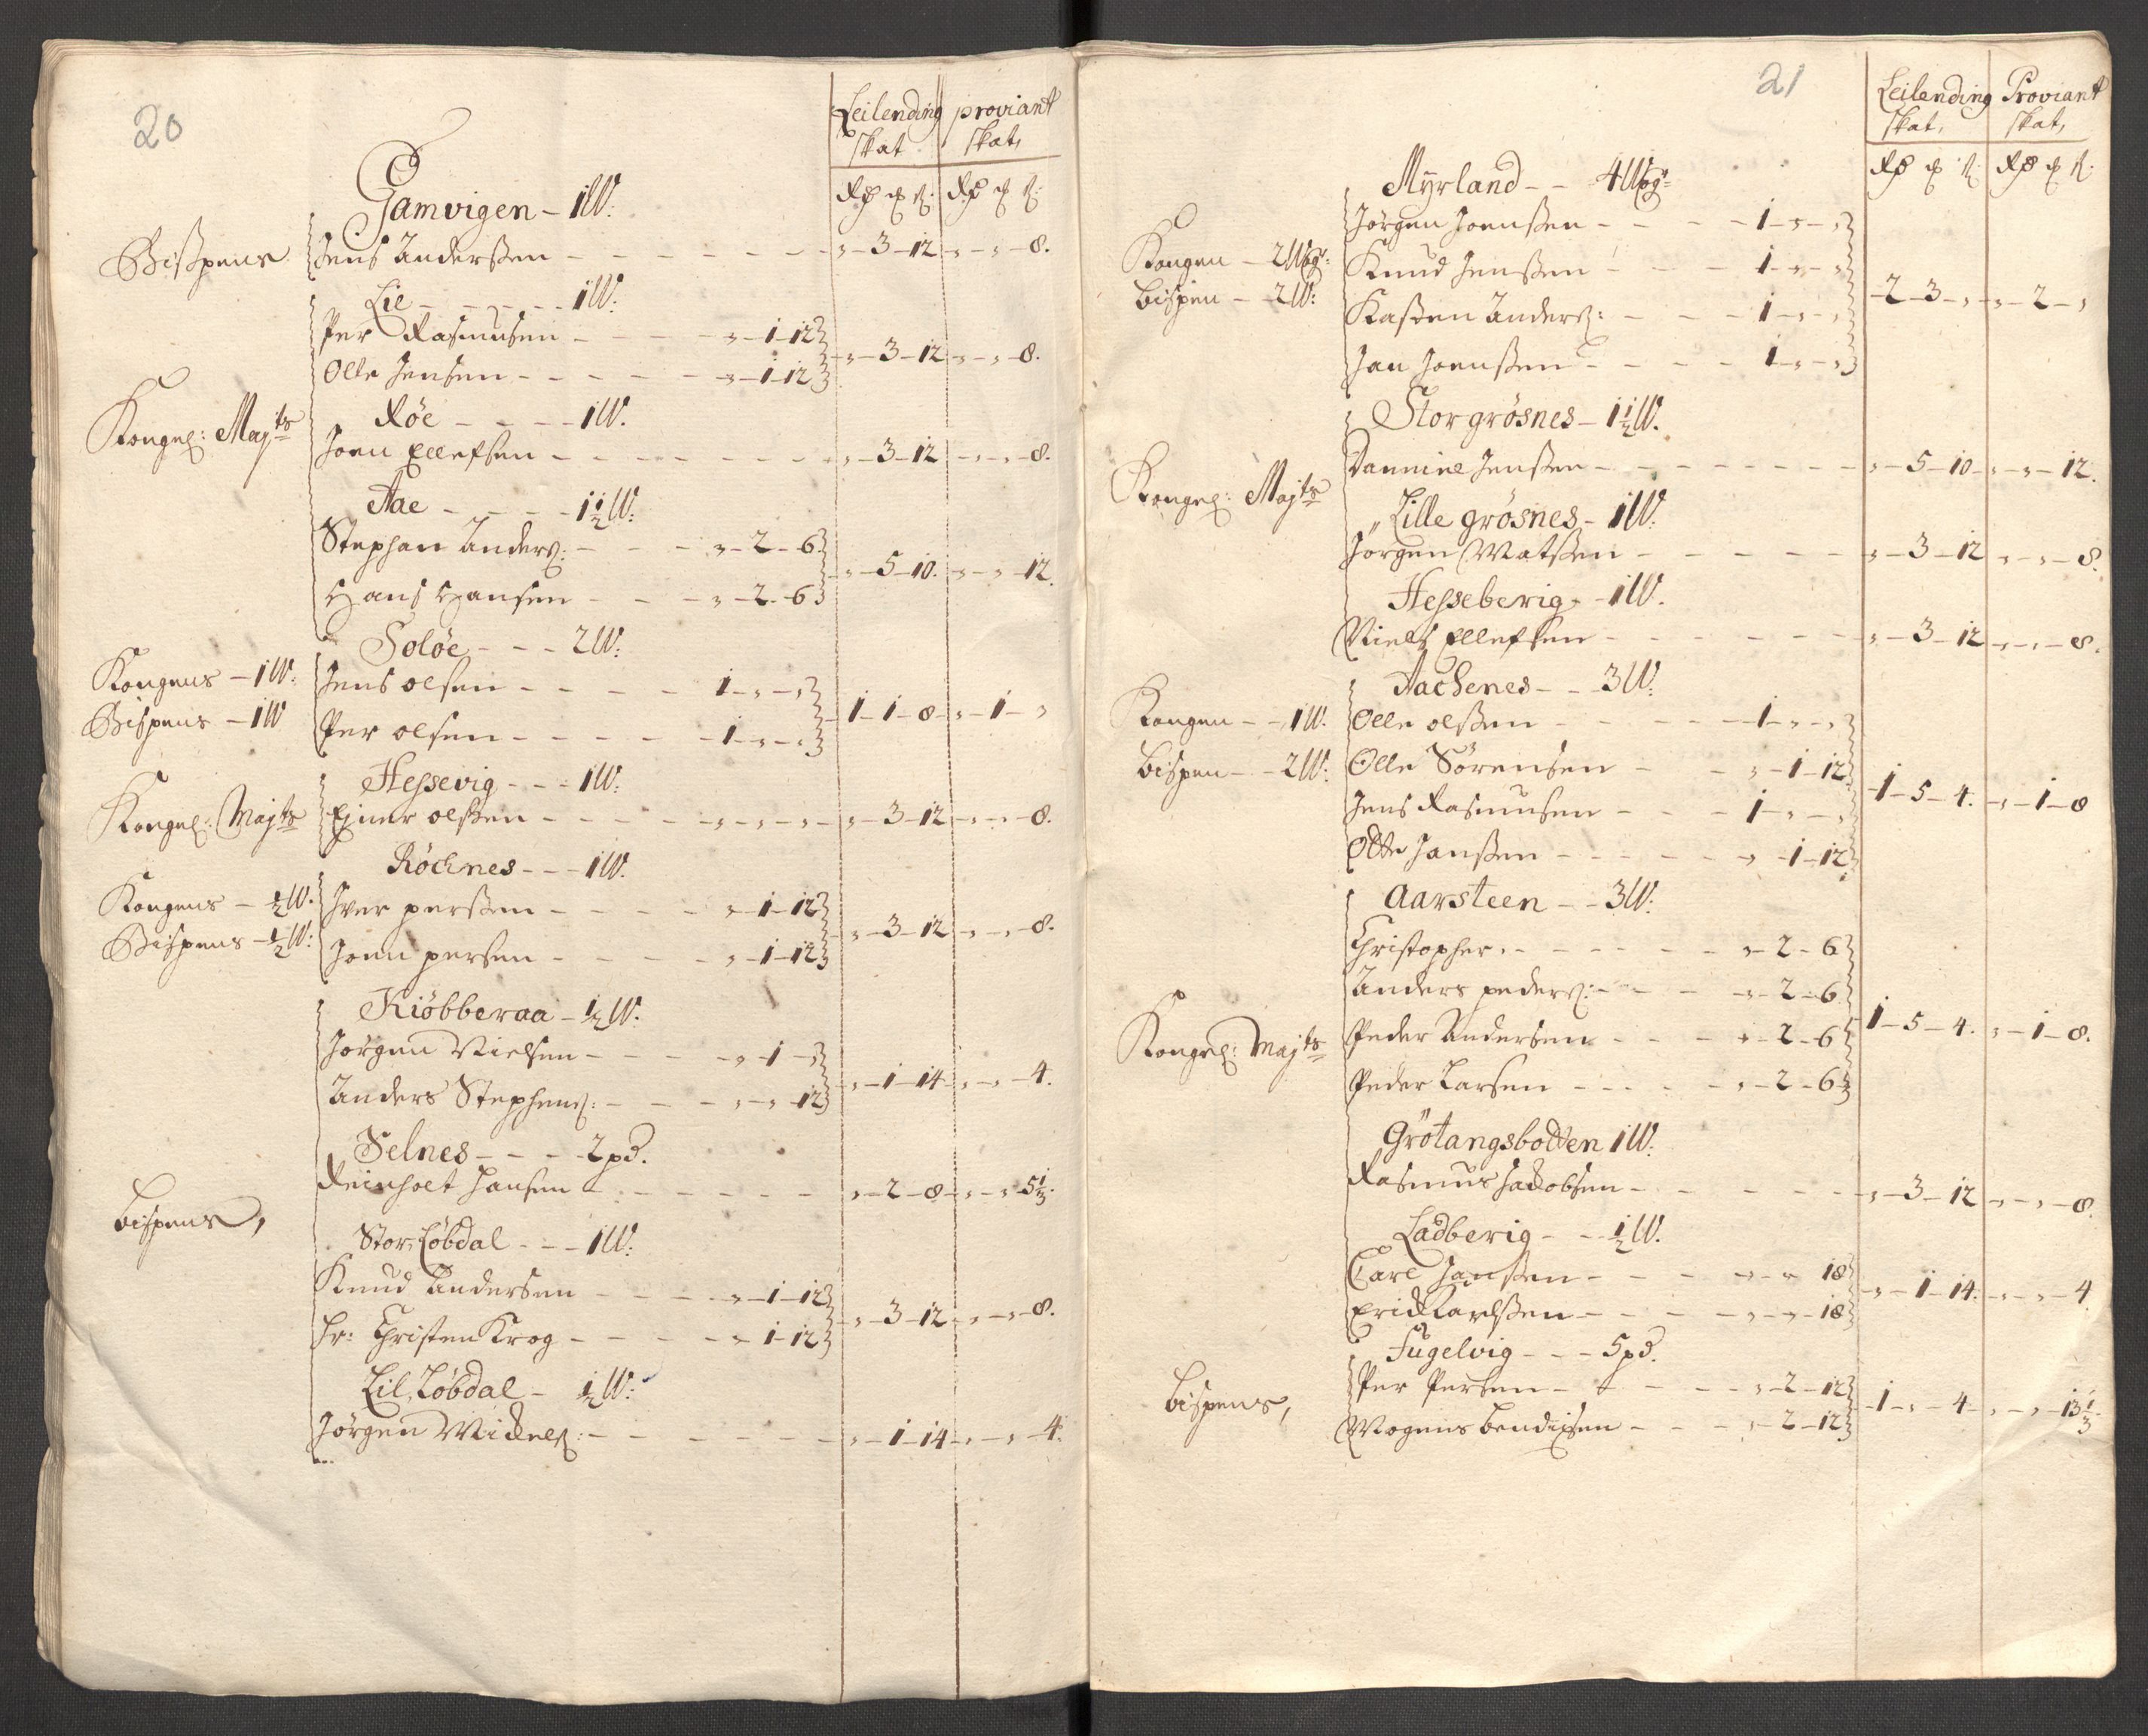 20
Leilending proviant
skat skat,
Rdr ort s: Rdr ort s:
Gamvigen - 1 W:
Bispens Jens Anderßen - - - „ - 3 - 12 „ - „ - 8.
Lie - - - 1 W:
Per Rasmusen - - - „ - 1 - 12
Olle Jensen - - - „ - 1 - 12 „ - 3 - 12 „ - „ - 8.
Kongel: Majts Røe - - - 1 W.
Joen Ellefsen - - - „ - 3 - 12 „ - „ - 8.
Aae - - - 1½ W:
Stephan Anders: - - - „ - 2 - 6
Hans Hansen - - - „ - 2 - 6 „ - 5 - 10. „ - „ - 12.
Soløe - - - 2 W:
Kongens - 1 W: Jens olsen - - - 1 - „ - „
Bispens - 1 W Per olsen - - - 1 - „ - „ 1 - 1 - 8 - „ - 1 - „
Hessevig - - - 1 W:
Kongel: Majts Ejner olßen - - - „ - „ - „ - „ - 3 - 12 „ - „ - 8.
Röchnes - - - 1 W.
Kongens - ½ W. Iver perßen - - - „ - 1 - 12
Bispens - ½ W: Joen persen - - - „ - 1 - 12 „ - 3 - 12 „ - „ - 8.
Kiöbberaa - ½ W.
Jørgen Nielsen - - - „ - 1 - „
Anders Stephens: - - - „ - „ 12 „ - 1 - 14 „ - „ - 4.
Selnes - - - 2 pd.
Bispens, Reinholt Hansen - - - „ - 2 - 8 - „ - „ 5⅓.
Stor Løbdal - - - 1 W:
Knud Andersen - - - „ - 1 - 12
hr: Christen Krog - - - „ - 1 - 12 „ - 3 - 12 „ - „ - 8.
Lil Løbdal - ½ W:
Jørgen Mickels: - - - „ - 1 - 14 „ - „ - 4.
21
Leilending Proviant
skat, skat,
Rdr ort s: Rdr ort s:
Myrland - - 4 Wogr
Jørgen Joenßen - - - 1 - „ - „
Kongen - 2 Wogr: Knud Jenßen - - - 1 - „ - „
Bispen - 2 W: Kasten Anders: - - - 1 - „ - „ 2 - 3 - „ - „ - 2 - „
Jan Joenßen - - - 1 - „ - „
Stor grösnes - 1½ W.
Kongel: Majts Dannine Jenßen - - - „ - 5 - 10 - „ - „ - 12.
Lille grösnes - 1 W:
Jørgen Matßen - - - „ - 3 - 12 „ - „ - 8.
Hesseberig - 1 W.
Niels Ellefsen - - - „ - 3 - 12 „ - „ - 8.
Aachenes - - 3 W:
Kongen - - 1 W. Olle olßen - - - 1 - „ - „
Bispen - - 2 W: Olle Sørensen - - „ - 1 - 12
Jens Rasmusen - - - 1 - „ - „ 1 - 5 - 4. „ - 1 - 8
Olle Janßen - - - „ - 1 - 12
Aarsteen - - 3 W:
Christopher - - - „ - 2 - 6
Anders peders: - - - „ - 2 - 6
Kongel: Majts Peder Andersen - - - „ - 2 - 6 1 - 5 - 4. „ - 1 - 8.
Peder Larsen - - - „ - 2 - 6
Grötangsbotten 1 W:
Rasmus Jacobsen - - - „ - 3 - 12 „ - „ - 8.
Ladberig - - ½ W.
Carl Janßen - - - „ - „ 18
Erick Carlßen - - - „ - „ - 18 „ - 1 - 14. „ - „ - 4
Fugelvig - - - 5 pd.
Bispens, Per Persen - - - „ - 2 - 12
Mogens bendixsen - - - „ - 2 - 12 1 - „ - 4 - „ - „ - 13⅓